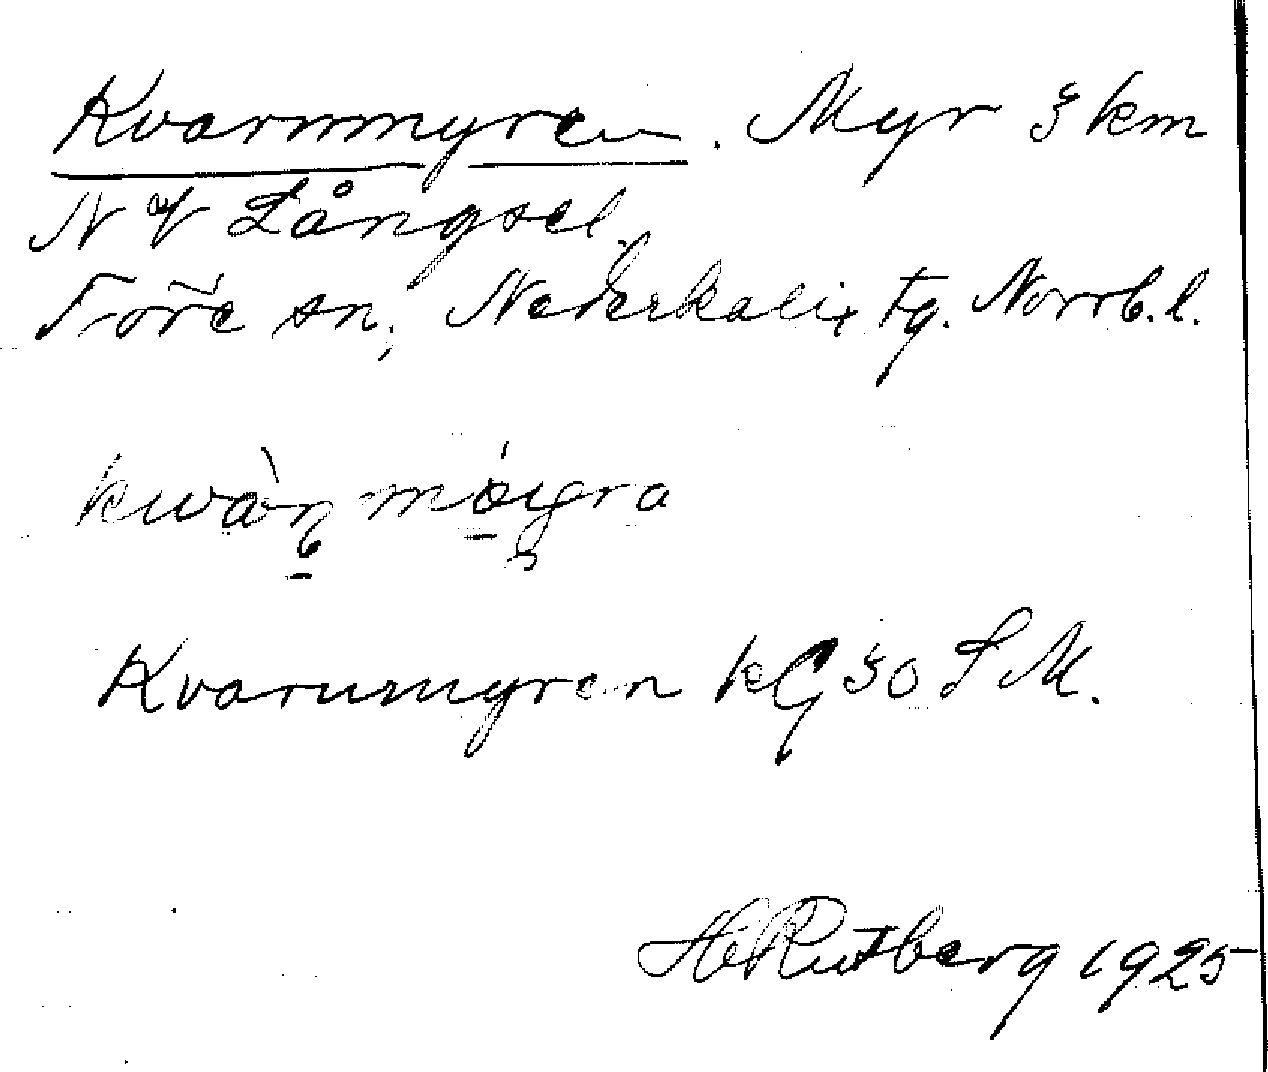 Kvarnmyren. Myr 3 km
N of Långsel,
Töre sn, Nederkalix tg. Norrb. l.
Kvarnmyren kG 30 S M.
H Rutberg 1925